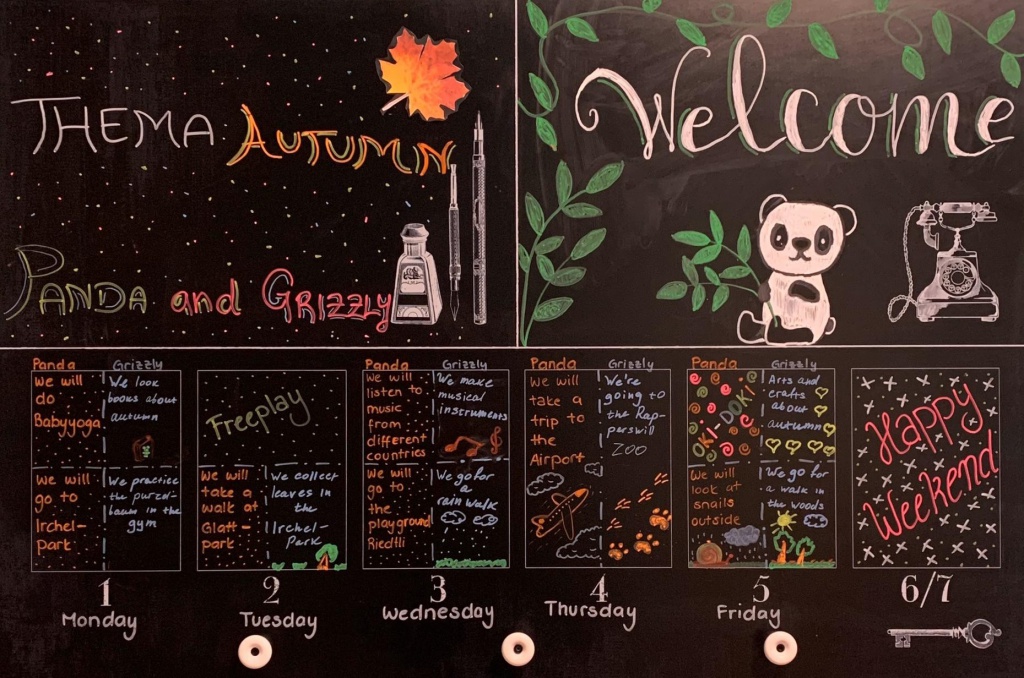 THEMA AUTUMN
PANDA and GRIZZLY
Welcome
Panda
We will
do
Babyyoga
We will
go to
Irchel-
park
Grizzly
We look
books about
autumn
We practice
the purzel-
baum in the
gym
1
Monday
Freeplay
We will
take a
walk at
Glatt-
park
We collect
leaves in
the
Irchel-
Park
2
Tuesday
Panda
We will
listen to
music
from
different
countries
We will
go to
the
playground
Riedtli
Grizzly
We make
musical
instruments
We go for
a
rain walk
3
Wednesday
Panda
We will
take a
trip to
the
Airport
Grizzly
We're
going to
the Rap-
perswill
ZOO
4
Thursday
Panda
OKI-DOKI
We will
look at
snails
outside
Grizzly
Arts and
crafts
about
autumn
We go for
a walk in
the woods
5
Friday
Happy
Weekend
6/7